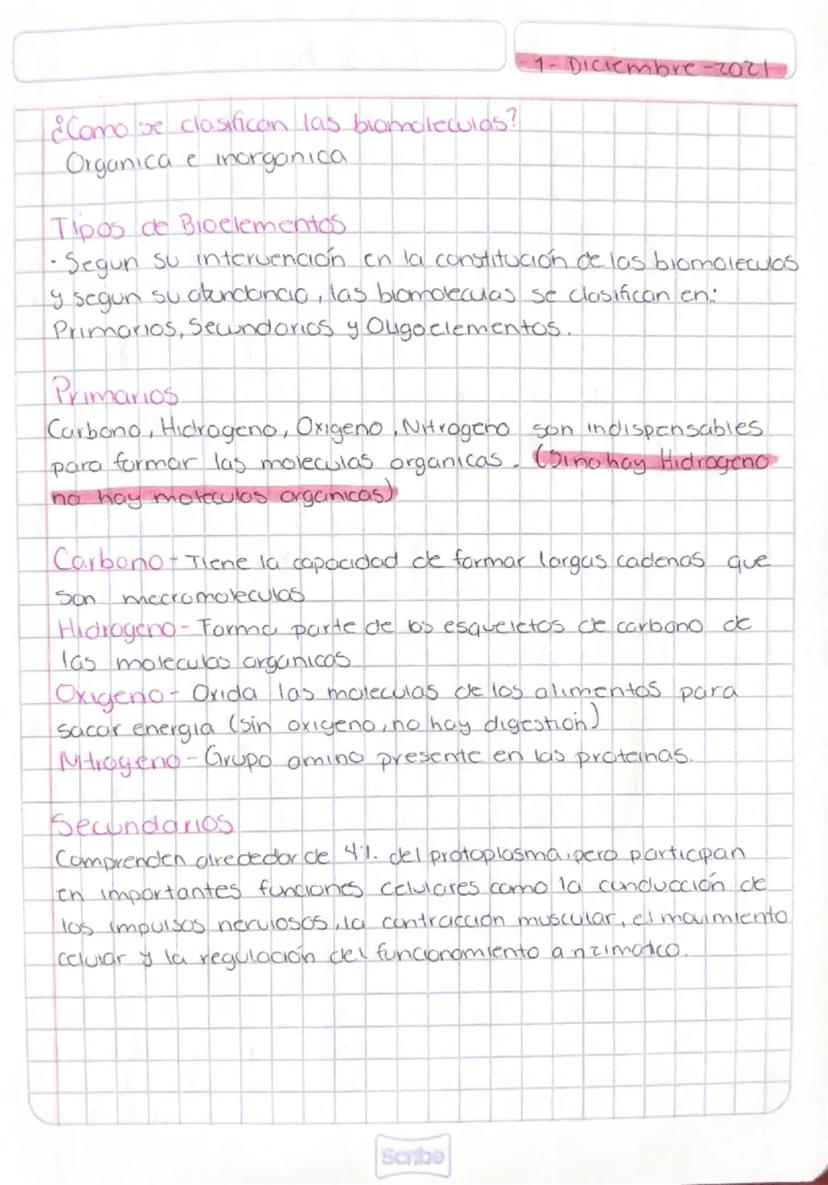 -1- Diciembre-2021
¿Como se clasifican las biomoleculas?
Organica e inorganica
Tipos de Bioelementos
· Segun su intervención en la constitución de las biomoleculas
y segun su abundancia, las biomoleculas se clasifican en:
Primarios, Secundarios y Oligoelementos.
Primarios
Carbono, Hidrogeno, Oxigeno, Nitrogeno son indispensables
para formar las moleculas organicas. (Si no hay Hidrogeno
no hay moleculas organicas)
Carbono - Tiene la capacidad de formar largas cadenas que
son macromoleculas
Hidrogeno - Forma parte de los esqueletos de carbono de
las moleculas organicas
Oxigeno - Oxida las moleculas de los alimentos para
sacar energia (sin oxigeno, no hay digestión)
Nitrogeno - Grupo amino presente en las proteinas.
Secundarios
Comprenden alrededor de 4%. del protoplasma, pero participan
en importantes funciones celulares como la conducción de
los impulsos nerviosos, la contracción muscular, el movimiento
celular y la regulación del funcionamiento anzimatico.
Scribe